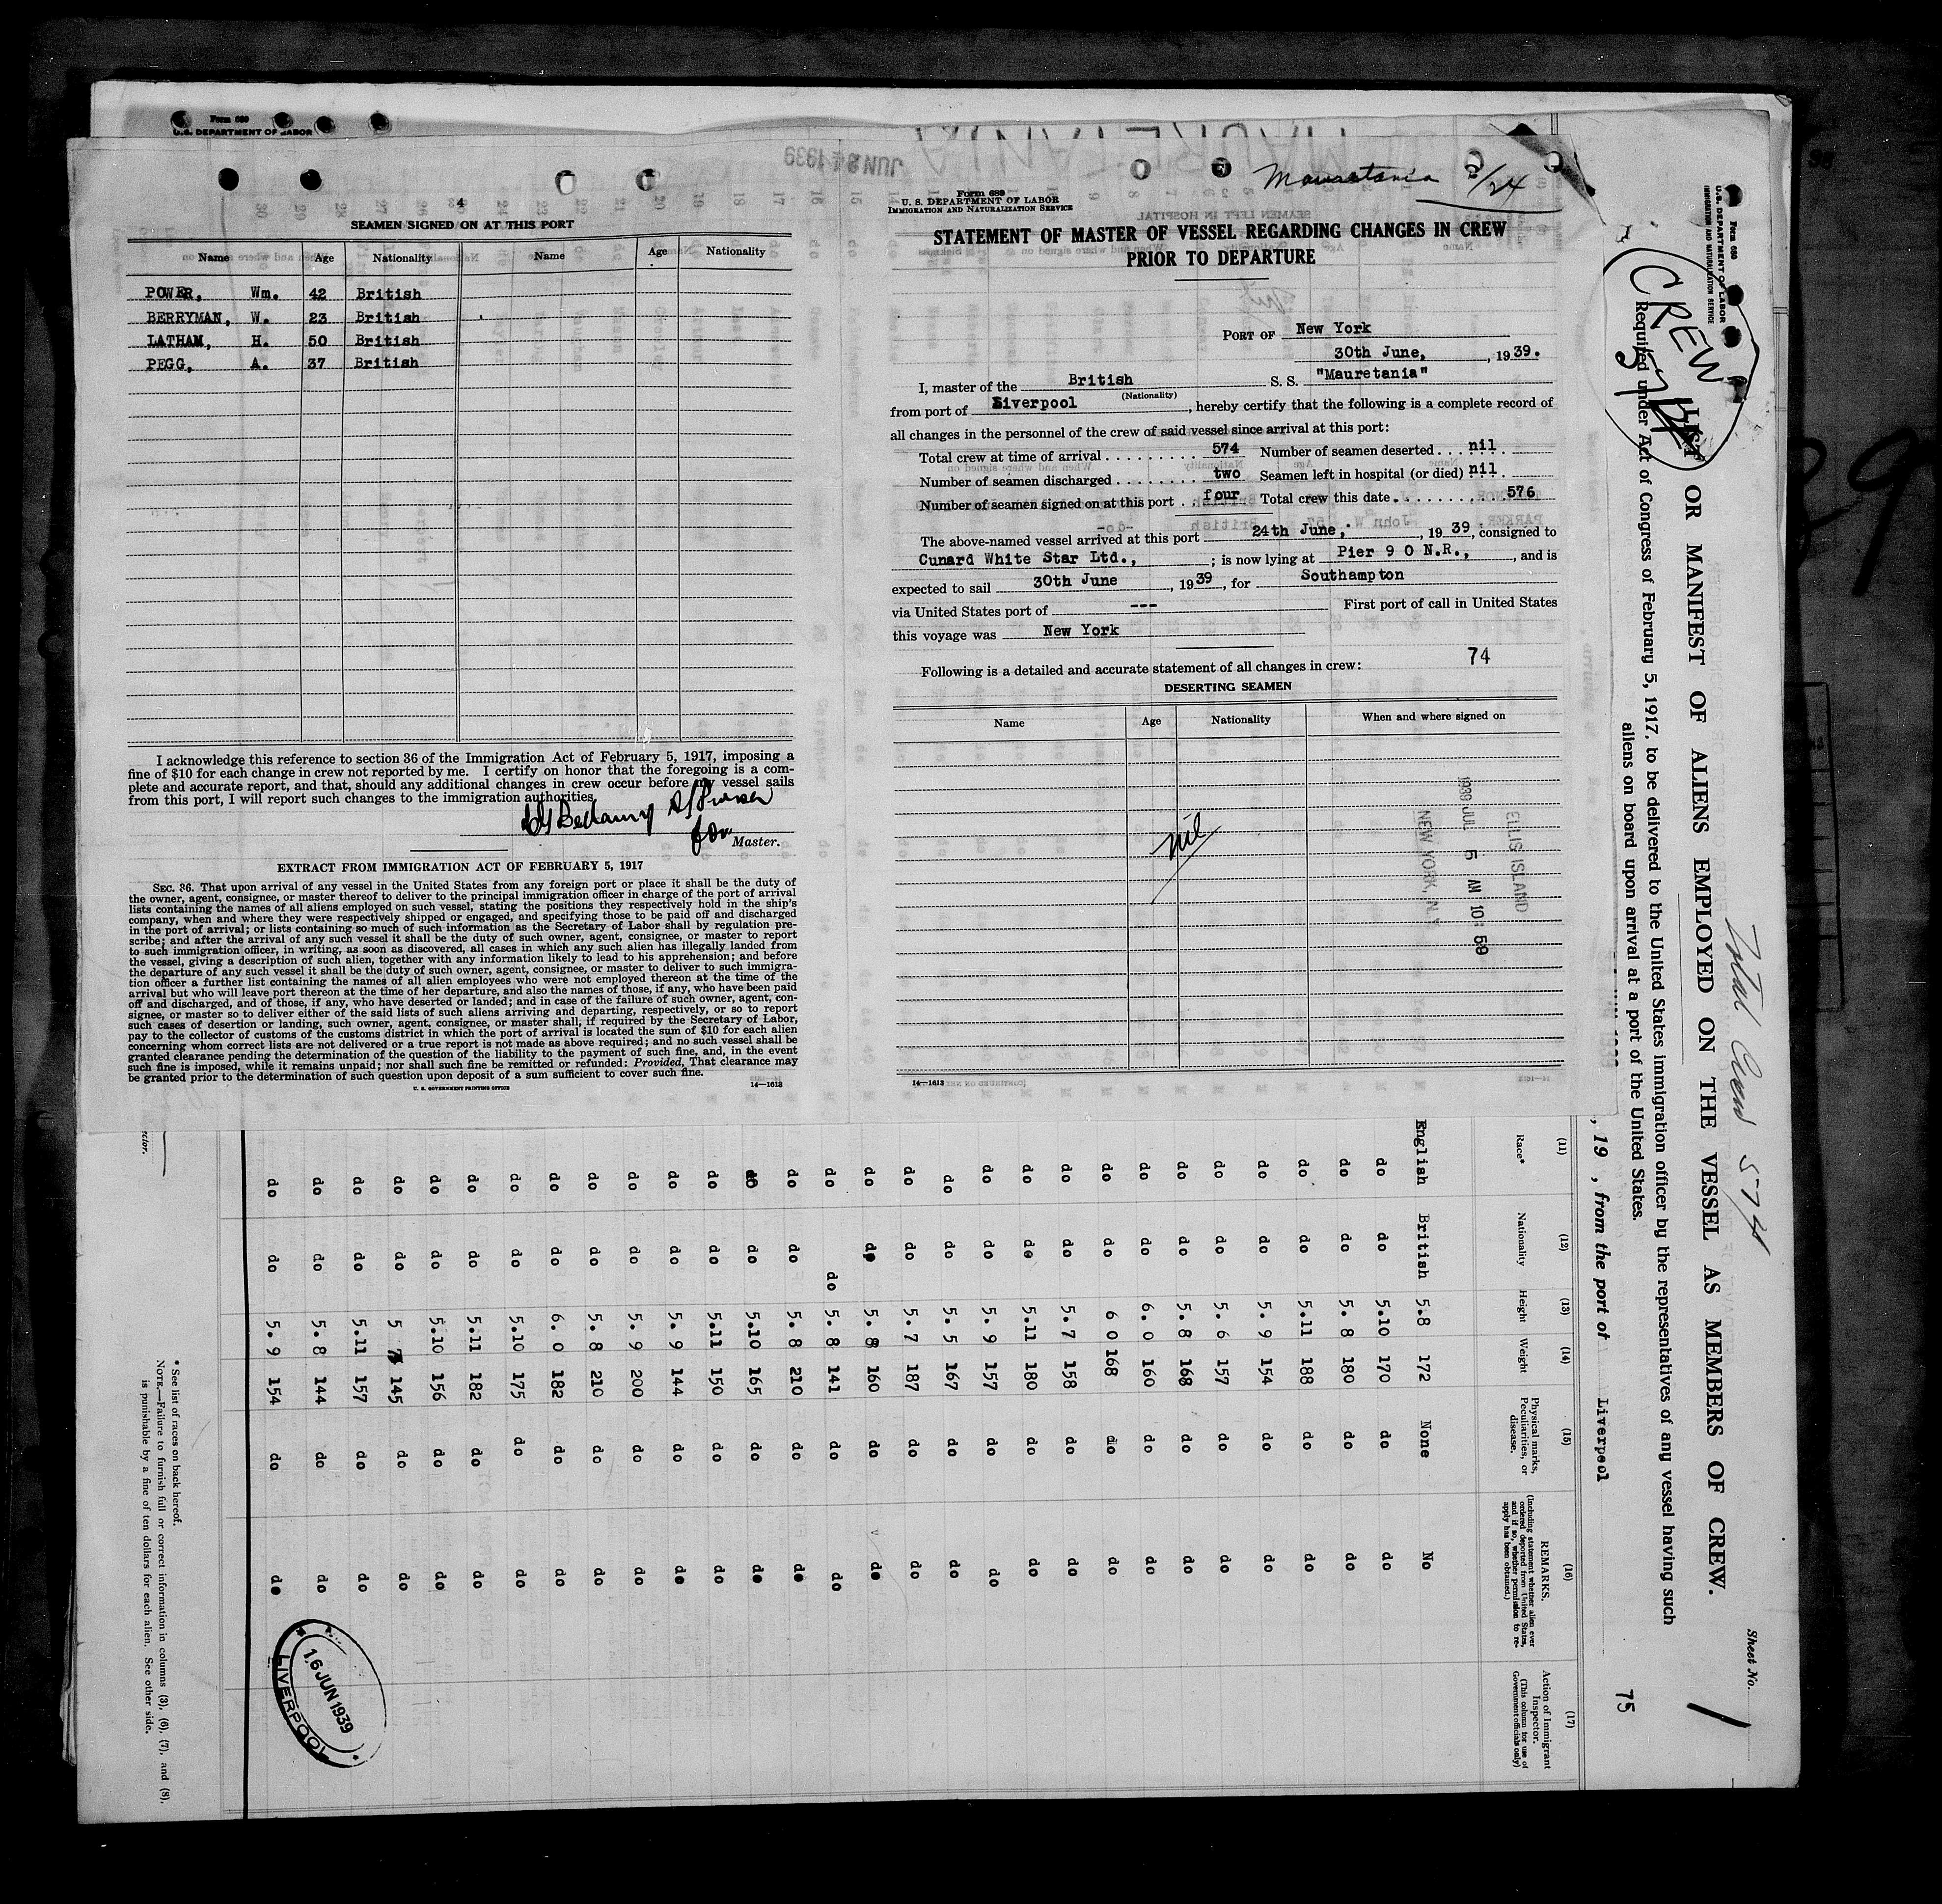 Form 680
U. S. DEPARTMENT OF LABOR
JUN 24 1939
MAURETANIA
4
SEAMEN SIGNED ON AT THIS PORT
Name Age Nationality Name Age Nationality
POWER, Wm. 42 British
BERRYMAN, W. 23 British
LATHAM, H. 50 British
PEGG, A. 37 British
I acknowledge this reference to section 36 of the Immigration Act of February 5, 1917, imposing a
fine of $10 for each change in crew not reported by me. I certify on honor that the foregoing is a com-
plete and accurate report, and that, should any additional changes in crew occur before my vessel sails
from this port, I will report such changes to the immigration authorities.
Bellamy
for Master.
EXTRACT FROM IMMIGRATION ACT OF FEBRUARY 5, 1917
SEC. 36. That upon arrival of any vessel in the United States from any foreign port or place it shall be the duty of
the owner, agent, consignee, or master thereof to deliver to the principal immigration officer in charge of the port of arrival
lists containing the names of all aliens employed on such vessel, stating the positions they respectively hold in the ship's
company, when and where they were respectively shipped or engaged, and specifying those to be paid off and discharged
in the port of arrival; or lists containing so much of such information as the Secretary of Labor shall by regulation pre-
scribe; and after the arrival of any such vessel it shall be the duty of such owner, agent, consignee, or master to report
to such immigration officer, in writing, as soon as discovered, all cases in which any such alien has illegally landed from
the vessel, giving a description of such alien, together with any information likely to lead to his apprehension; and before
the departure of any such vessel it shall be the duty of such owner, agent, consignee, or master to deliver to such immigra-
tion officer a further list containing the names of all alien employees who were not employed thereon at the time of the
arrival but who will leave port thereon at the time of her departure, and also the names of those, if any, who have been paid
off and discharged, and of those, if any, who have deserted or landed; and in case of the failure of such owner, agent, con-
signee, or master so to deliver either of the said lists of such aliens arriving and departing, respectively, or so to report
such cases of desertion or landing, such owner, agent, consignee, or master shall, if required by the Secretary of Labor,
pay to the collector of customs of the customs district in which the port of arrival is located the sum of $10 for each alien
concerning whom correct lists are not delivered or a true report is not made as above required; and no such vessel shall be
granted clearance pending the determination of the question of the liability to the payment of such fine, and, in the event
such fine is imposed, while it remains unpaid; nor shall such fine be remitted or refunded: Provided, That clearance may
be granted prior to the determination of such question upon deposit of a sum sufficient to cover such fine.
U. S. GOVERNMENT PRINTING OFFICE 14—1613
Mauretania 6/24
Form 689
U. S. DEPARTMENT OF LABOR
IMMIGRATION AND NATURALIZATION SERVICE
STATEMENT OF MASTER OF VESSEL REGARDING CHANGES IN CREW
PRIOR TO DEPARTURE
PORT OF New York
30th June, , 1939.
I, master of the British S. S. "Mauretania"
(Nationality)
from port of Liverpool , hereby certify that the following is a complete record of
all changes in the personnel of the crew of said vessel since arrival at this port:
Total crew at time of arrival . . . . . . . . . 574 Number of seamen deserted . . . nil
Number of seamen discharged . . . . . . . . two Seamen left in hospital (or died) nil
Number of seamen signed on at this port . . four Total crew this date . . . . . . . . . 576
The above-named vessel arrived at this port 24th June, , 1939, consigned to
Cunard White Star Ltd., ; is now lying at Pier 9 O N.R., , and is
expected to sail 30th June , 1939, for Southampton
via United States port of --- First port of call in United States
this voyage was New York
74
Following is a detailed and accurate statement of all changes in crew:
DESERTING SEAMEN
Name Age Nationality When and where signed on
nil
1939 JUL 5 AM 10: 59
ELLIS ISLAND
NEW YORK, N.Y.
14—1613
Form 680
U. S. DEPARTMENT OF LABOR
IMMIGRATION AND NATURALIZATION SERVICE
CREW
574
Total Crew 574
Sheet No. 1
LIST OR MANIFEST OF ALIENS EMPLOYED ON THE VESSEL AS MEMBERS OF CREW.
Required under Act of Congress of February 5, 1917, to be delivered to the United States immigration officer by the representatives of any vessel having such
aliens on board upon arrival at a port of the United States.
, 19 , from the port of Liverpool
75
(11) (12) (13) (14) (15) (16) (17)
Race* Nationality Height Weight Physical marks, Peculiarities, or disease. REMARKS. (Including statement whether alien ever ordered deported from United States, and if so, whether permission to re-apply has been obtained.) Action of Immigrant Inspector. (This column for use of Government officials only)
English British 5.8 172 None No
do do 5.10 170 do do
do do 5. 8 180 do do
do do 5.11 188 do do
do do 5. 9 154 do do
do do 5. 6 157 do do
do do 5. 8 168 do do
do do 6. 0 160 do do
do do 6 0 168 do do
do do 5. 7 158 do do
do do 5.11 180 do do
do do 5. 9 157 do do
do do 5. 5 167 do do
do do 5. 7 187 do do
do do 5. 8 160 do do
do do 5. 8 141 do do
do do 5. 8 210 do do
do do 5.10 165 do do
do do 5.11 150 do do
do do 5. 9 144 do do
do do 5. 9 200 do do
do do 5. 8 210 do do
do do 6. 0 182 do do
do do 5.10 175 do do
do do 5.11 182 do do
do do 5.10 156 do do
do do 5 7 145 do do
do do 5.11 157 do do
do do 5. 8 144 do do
do do 5. 9 154 do do
* See list of races on back hereof.
NOTE.—Failure to furnish full or correct information in columns (3), (6), (7), and (8),
is punishable by a fine of ten dollars for each alien. See other side.
16 JUN 1939
LIVERPOOL